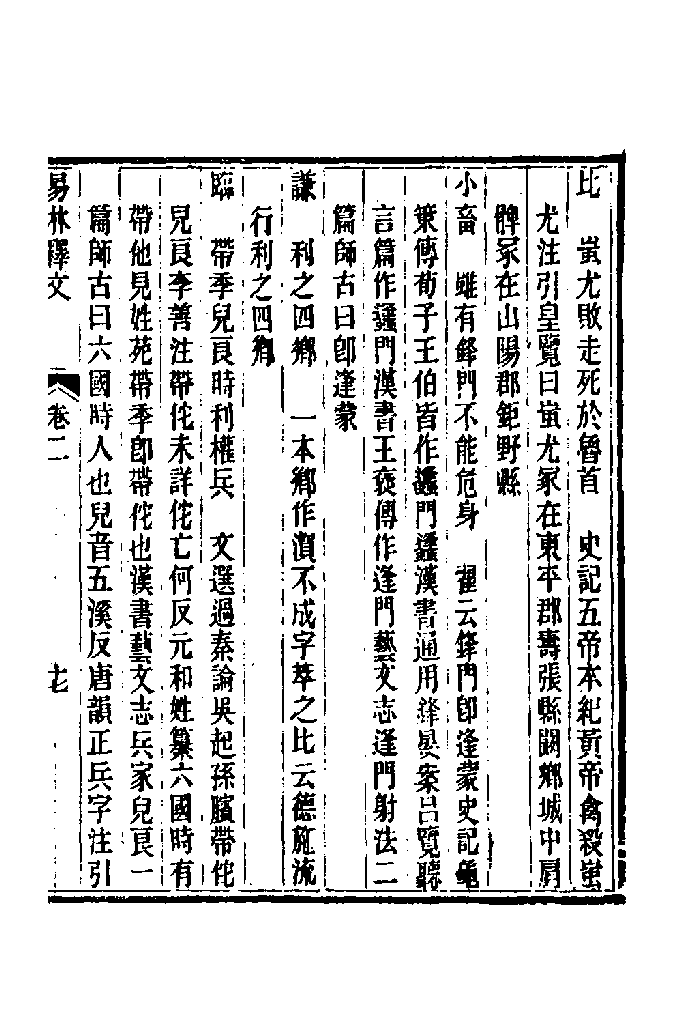 比　蚩尤敗走死於魯首　史記五帝本紀黃帝禽殺蚩
尤注引皇覽曰蚩尤冢在東平郡壽張縣闞鄉城中肩
髀冢在山陽郡鉅野縣
小畜　雖有鋒門不能危身　翟云鋒門卽逢蒙史記龜
策傳荀子王伯皆作蠭門蠭漢書通用鋒晏案呂覽聽
言篇作蠭門漢書王襃傳作逢門藝文志逢門射法二
篇師古曰卽逢蒙
謙　利之四鄉　一本鄉作瀕不成字萃之比云德施流
行利之四鄉
臨　帶季兒良時利權兵　文選過秦論吳起孫臏帶佗
兒良李善注帶佗未詳佗亡何反元和姓纂六國時有
帶他見姓苑帶季卽帶佗也漢書藝文志兵家兒良一
篇師古曰六國時人也兒音五溪反唐韻正兵字注引
易林釋文　卷二　十七